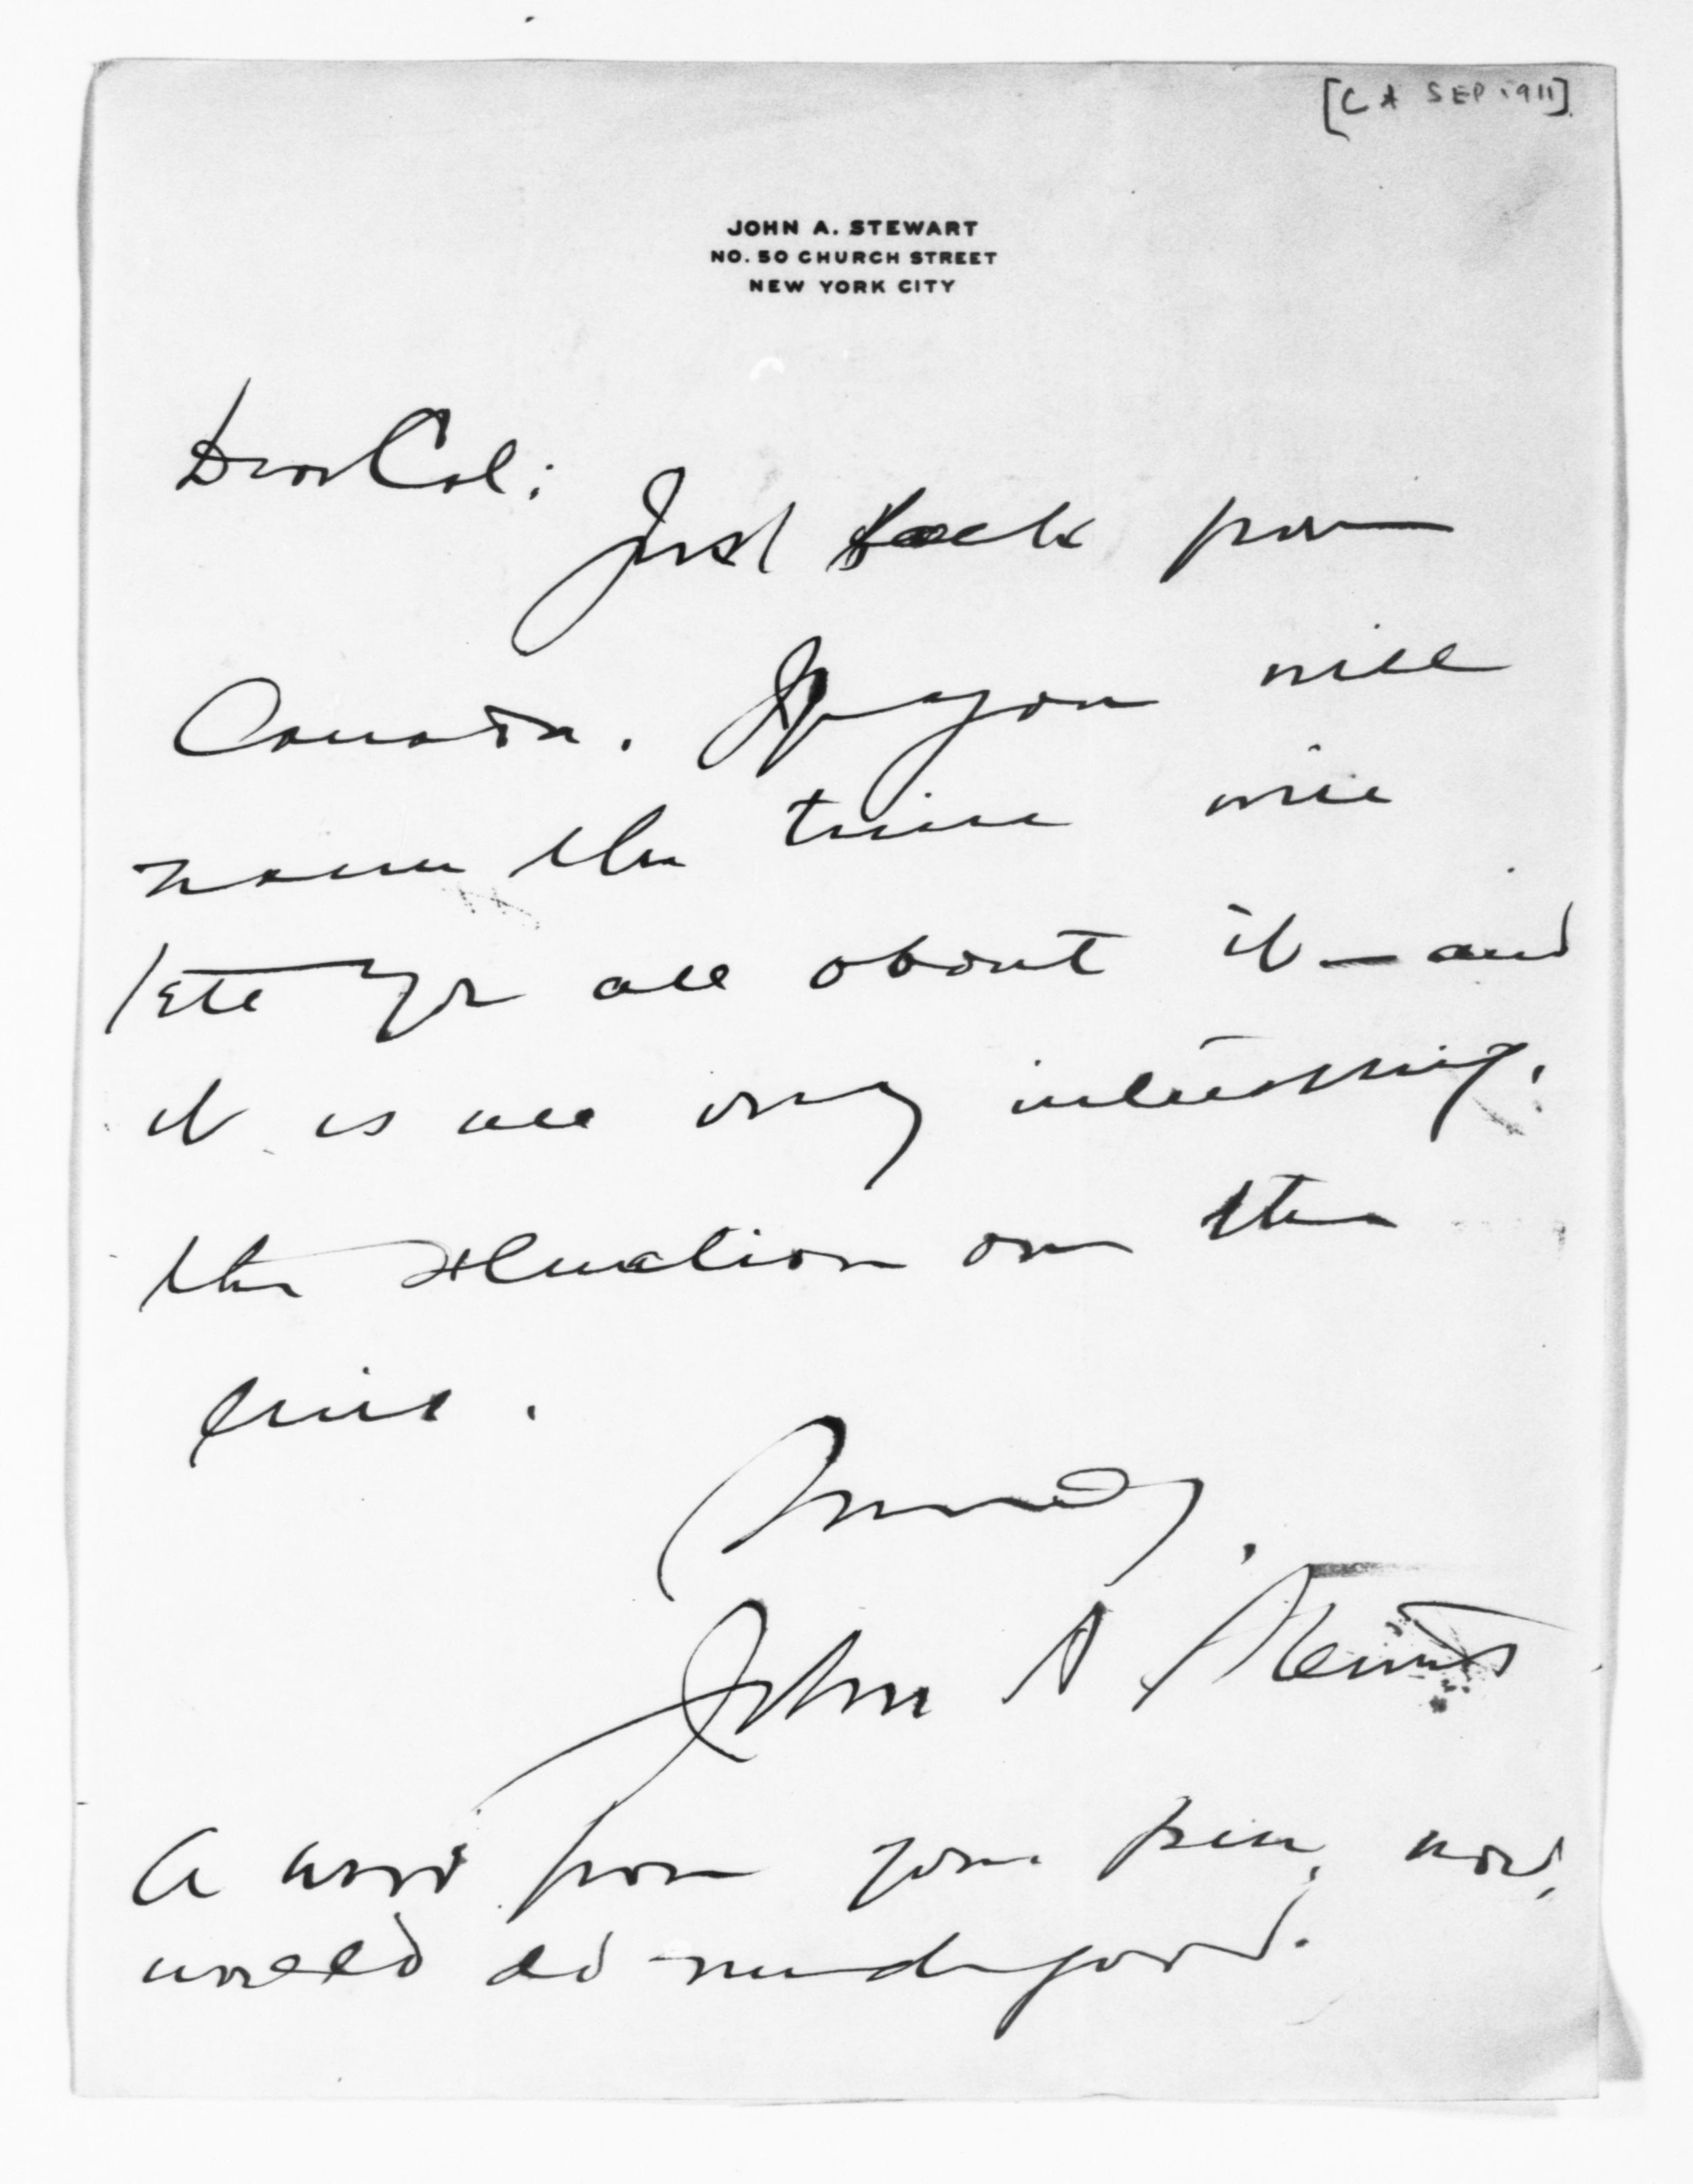 [CA SEP 1911]
JOHN A. STEWART
NO. 50 CHURCH STREET
NEW YORK CITY
Dear Col:
Just back from
Canada. If you will
name the time will
tell you all about it — and
it is all very interesting,
the situation over the
line.
Sincerely,
John A Stewart
A word from your pen, now,
would do much good.